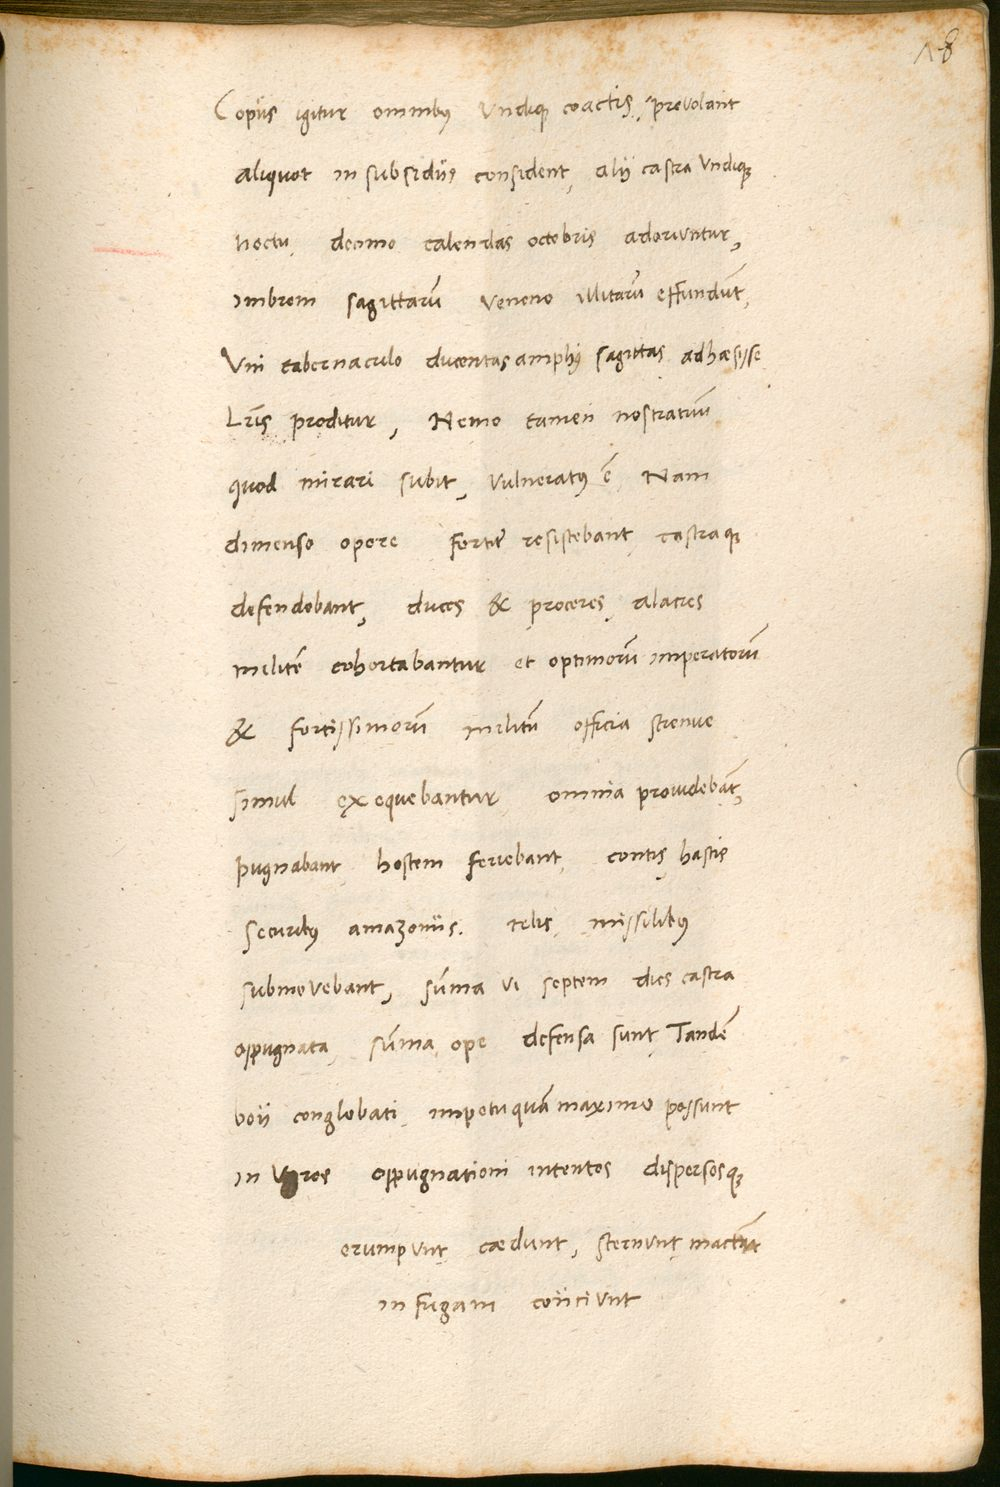 18
Copiis igitur omnibꝰ Undiqꝫ coactis, prevolant
aliquot in subsidiis consident, alij castra Undiqꝫ
noctu decimo calendas octobris adoriuntur,
imbrem sagittarū veneno illitarū effundūt,
Vni tabernaculo ducentas ampliꝰ sagittas adhæsisse
Lr̄is proditur, Nemo tamen nostratiuū
quod mirari subit, vulneratꝰ ē, Nam
dimenso opere fortit̄ resistebant castraqꝫ
defendebant, duces & proceres alacres
militē cohortabantur et optimorū imperatorū
& fortissimorū militū officia strenue
simul exequebantur omnia providebāt,
pugnabant hostem feriebant, contis hastis
securibꝰ amazoniis. telis missilibꝰ
submovebant, sūma vi septem dies castra
oppugnata, sūma ope defensa sunt, Tandē
boii conglobati impetu quā maximo possunt
in oppugnationi intentos dispersosqꝫ
erumpunt, cædunt, sternunt, mactāt
in fugam coiiciunt